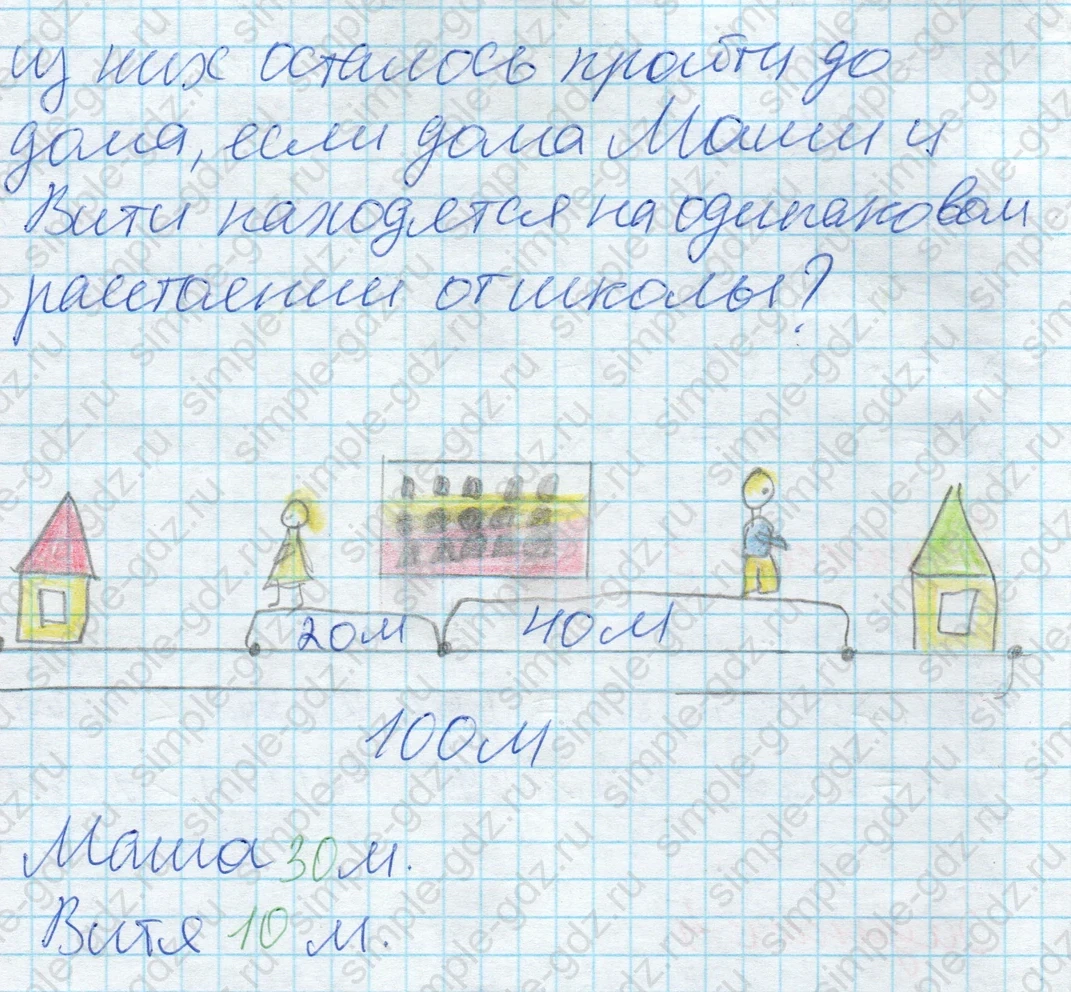 из них осталось пройти до
дома, если дома Маши и
Вити находятся на одинаковом
расстоянии от школы?
20м 40м
100м
Маша 30 м.
Витя 10 м.
simple-gdz.ru